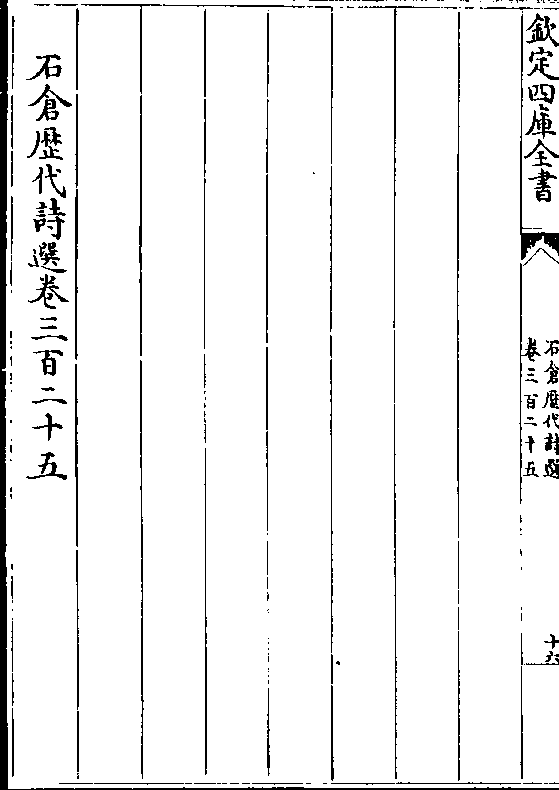 欽定四庫全書
石倉歷代詩選
卷三百二十五
十六
石倉歷代詩選卷三百二十五